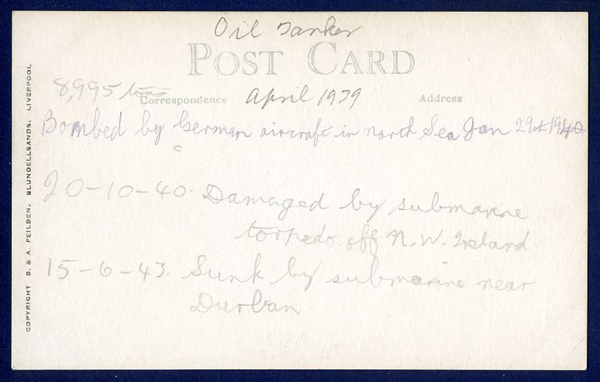 Oil Tanker
POST CARD
8,995 tons
Correspondence April 1939 Address
Bombed by German aircraft in North Sea Jan 29th 1940
20-10-40. Damaged by submarine
torpedo off N.W. Ireland.
15-6-43. Sunk by submarine near
Durban
COPYRIGHT B. & A. FEILDEN, BLUNDELLSANDS, LIVERPOOL